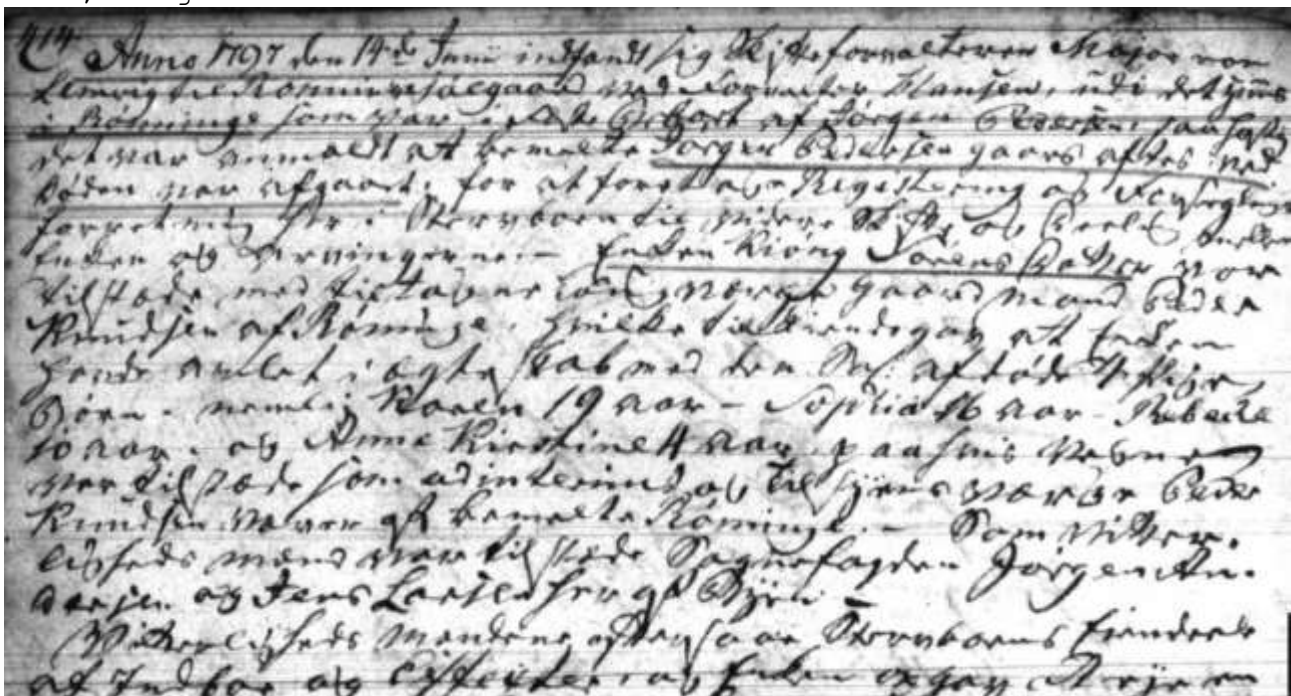 414.
Anno 1797 den 14de Junii indfandt sig Skifteforvalteren Major von
til Rønningesøegaard ved Forvalter Hansen, udi det
i Rønninge som var af Jørgen Pedersen,
det var anmeldt at bemelte Jørgen Pedersen gaars aftes ved
Døden var afgaaet, for at foretage Registering og Forseglings
forretning her i Stervboen til videre Skifte og Deeling imellem
Enken og Arvingerne. - Enken Sørens Datter var
tilstæde med tiltagne laug værge gaardmand Peder
Knudsen af Rønninge, hvilke tilkiendegav at Enken
havde avlet i ægteskab med den Sal: afdøde 4
Børn. nemlig Karen 19 aar - Sophia 16 aar - Rebecka
10 aar. og Anne Kirstine 4 aar, paa hvis Vegne
var tilstæde som adinterims og tilsyens værge Peder
Knudsen af bemelte Rønninge. - Som Vitter-
ligheds mænd var tilstæde Sognefogden Jørgen An-
dersen og Jens Larsen her af Byen -
Vitterligheds Mændene Stervboens Eiendeele
af Indboe og Effecter, og Enken